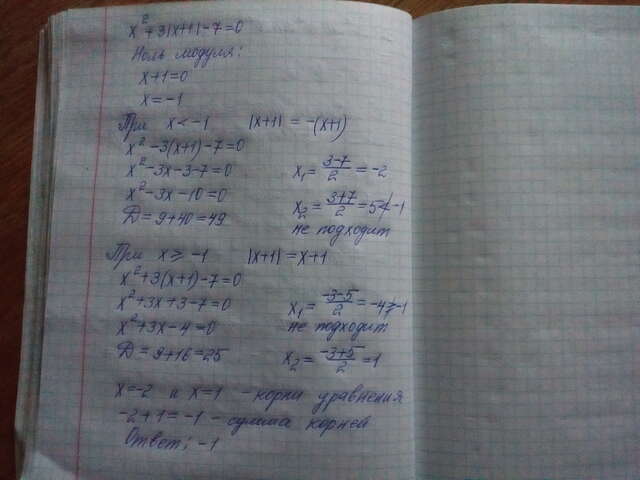 x² + 3|x+1| - 7 = 0
Ноль модуля:
x+1=0
x=-1
При x < -1 |x+1| = -(x+1)
x² - 3(x+1) - 7 = 0
x² - 3x - 3 - 7 = 0
x₁ = (3-7)/2 = -2
x² - 3x - 10 = 0
x₂ = (3+7)/2 = 5 ≮ -1
Д = 9+40 = 49
не подходит
При x ≥ -1 |x+1| = x+1
x² + 3(x+1) - 7 = 0
x² + 3x + 3 - 7 = 0
x₁ = (-3-5)/2 = -4 ≱ -1
x² + 3x - 4 = 0
не подходит
Д = 9+16 = 25
x₂ = (-3+5)/2 = 1
x=-2 и x=1 - корни уравнения
-2+1 = -1 - сумма корней
Ответ: -1